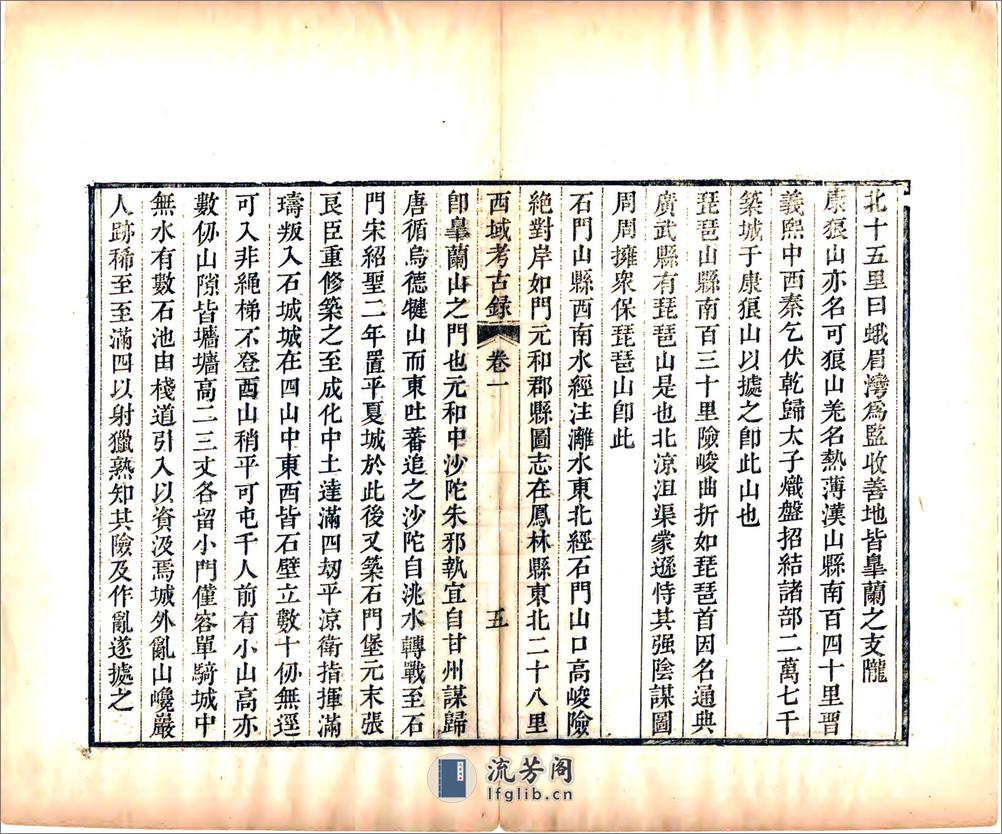 北十五里曰蛾眉灣爲監收善地皆皐蘭之支隴
康狼山亦名可狼山羌名熱薄漢山縣南百四十里晋
義熙中西秦乞伏乾歸太子熾盤招結諸部二萬七千
築城于康狼山以㨿之卽此山也
琵琶山縣南百三十里險峻曲折如琵琶首因名通典
廣武縣有琵琶山是也北涼沮渠蒙遜恃其强陰謀圖
周周擁衆保琵琶山卽此
石門山縣西南水經注灕水東北經石門山口高峻險
絶對岸如門元和郡縣圖志在鳳林縣東北二十八里
西域考古録 卷一 五
卽皐蘭山之門也元和中沙陀朱邪執宜自甘州謀歸
唐循烏德犍山而東吐蕃追之沙陀自洮水轉戰至石
門宋紹聖二年置平夏城於此後又築石門堡元末張
良臣重修築之至成化中土達滿四刼平涼衛指揮滿
璹叛入石城城在四山中東西皆石壁立數十仞無逕
可入非繩梯不登酉山稍平可屯千人前有小山高亦
數仞山隙皆墻墻高二三丈各留小門僅容單騎城中
無水有數石池由棧道引入以資汲焉城外亂山巉巖
人跡稀至至滿四以射獵熟知其險及作亂遂㨿之
流芳阁
lfglib.cn